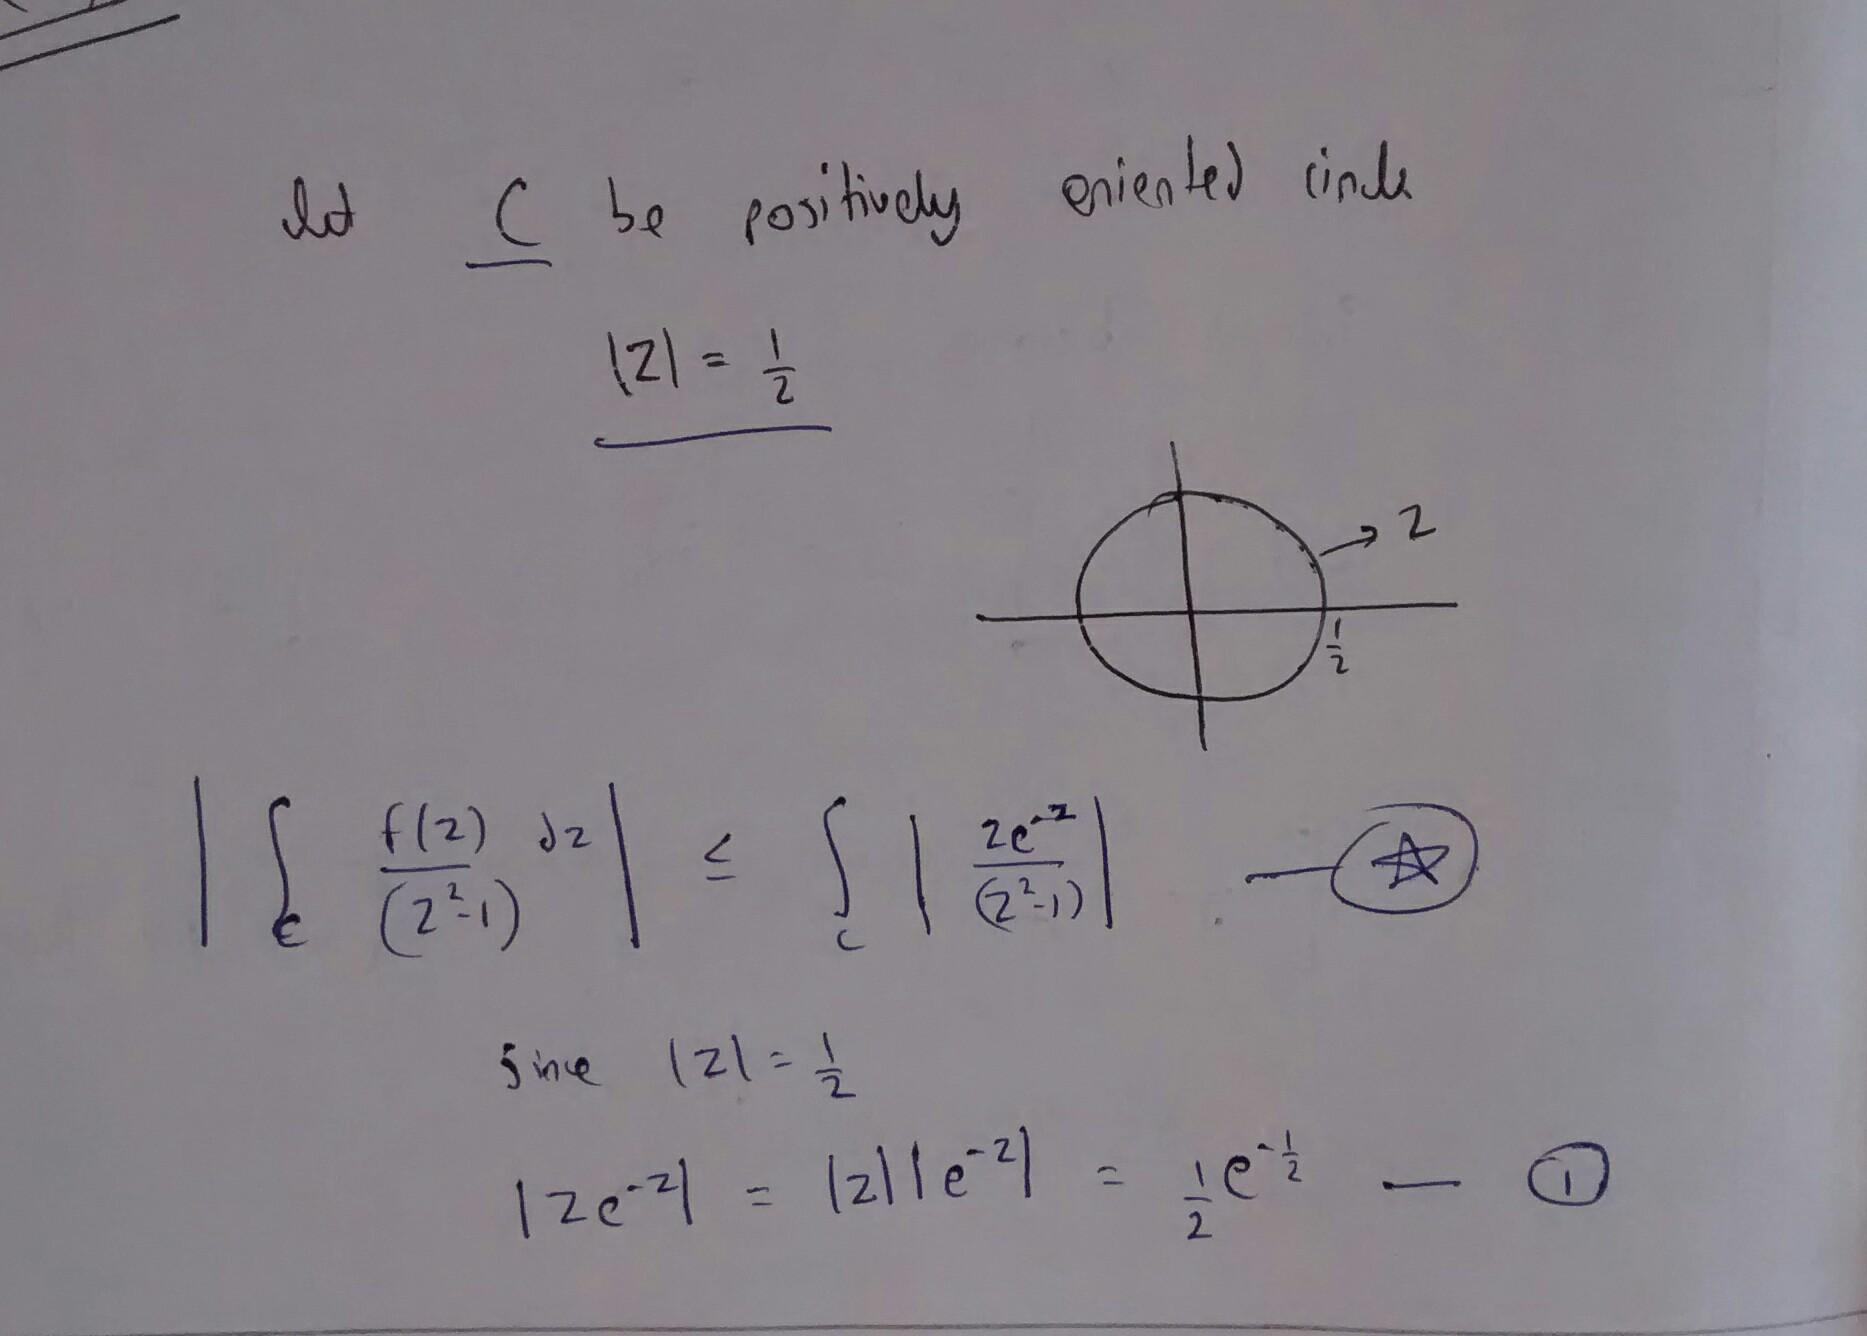 let C be positively oriented circle
|z| = 1/2
z
1/2
| ∫_C f(z)/(z²-1) dz | ≤ ∫_C | ze^-z/(z²-1) | — ☆
Since |z| = 1/2
|ze^-z| = |z||e^-z| = 1/2 e^-1/2 — ①